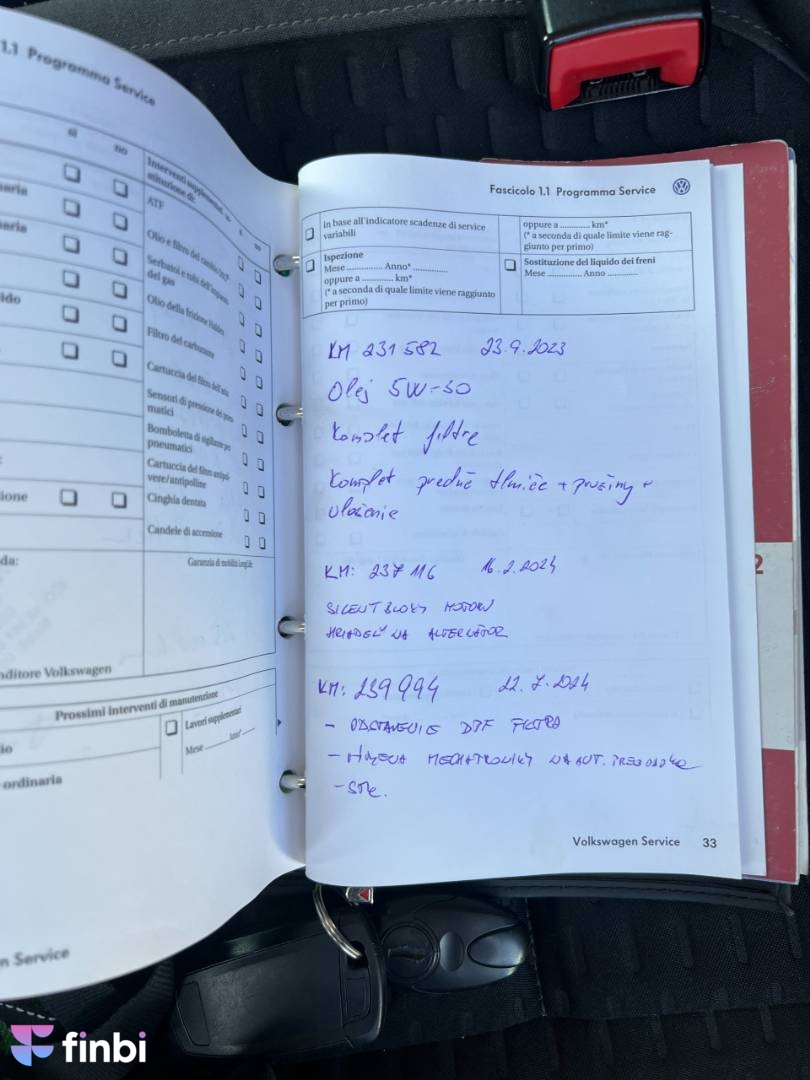 1.1 Programma Service
sì
no
Interventi supplementari, so-
stituzione di:
ATF
Olio e filtro del cambio DSG®
Serbatoi e tubi dell'impianto
del gas
Olio della frizione Haldex
Filtro del carburante
Cartuccia del filtro dell'aria
Sensori di pressione dei pneu-
matici
Bomboletta di sigillante per
pneumatici
Cartuccia del filtro antipol-
vere/antipolline
Cinghia dentata
Candele di accensione
Garanzia di mobilità LongLife
Volkswagen
Prossimi interventi di manutenzione
Lavori supplementari
Mese Anno*
ordinaria
Service
Fascicolo 1.1 Programma Service
in base all'indicatore scadenze di service
variabili
oppure a ........... km*
(* a seconda di quale limite viene rag-
giunto per primo)
Ispezione
Mese ............. Anno* .............
oppure a ........... km*
(* a seconda di quale limite viene raggiunto
per primo)
Sostituzione del liquido dei freni
Mese ............ Anno ...........
KM 231 582 23.9.2023
Olej 5W-30
Komplet filtre
Komplet predné tlmiče + pružiny +
uloženie
KM: 237 116 16.2.2024
SILENTBLOKY MOTORU
HRIADEĽ NA ALTERNÁTOR
KM: 239 994 22.7.2024
- ODSTAVENIE DPF FILTRA
- VÝMENA MECHATRONIKY NA AUT. PREVODOVKE
- STK.
Volkswagen Service 33
finbi